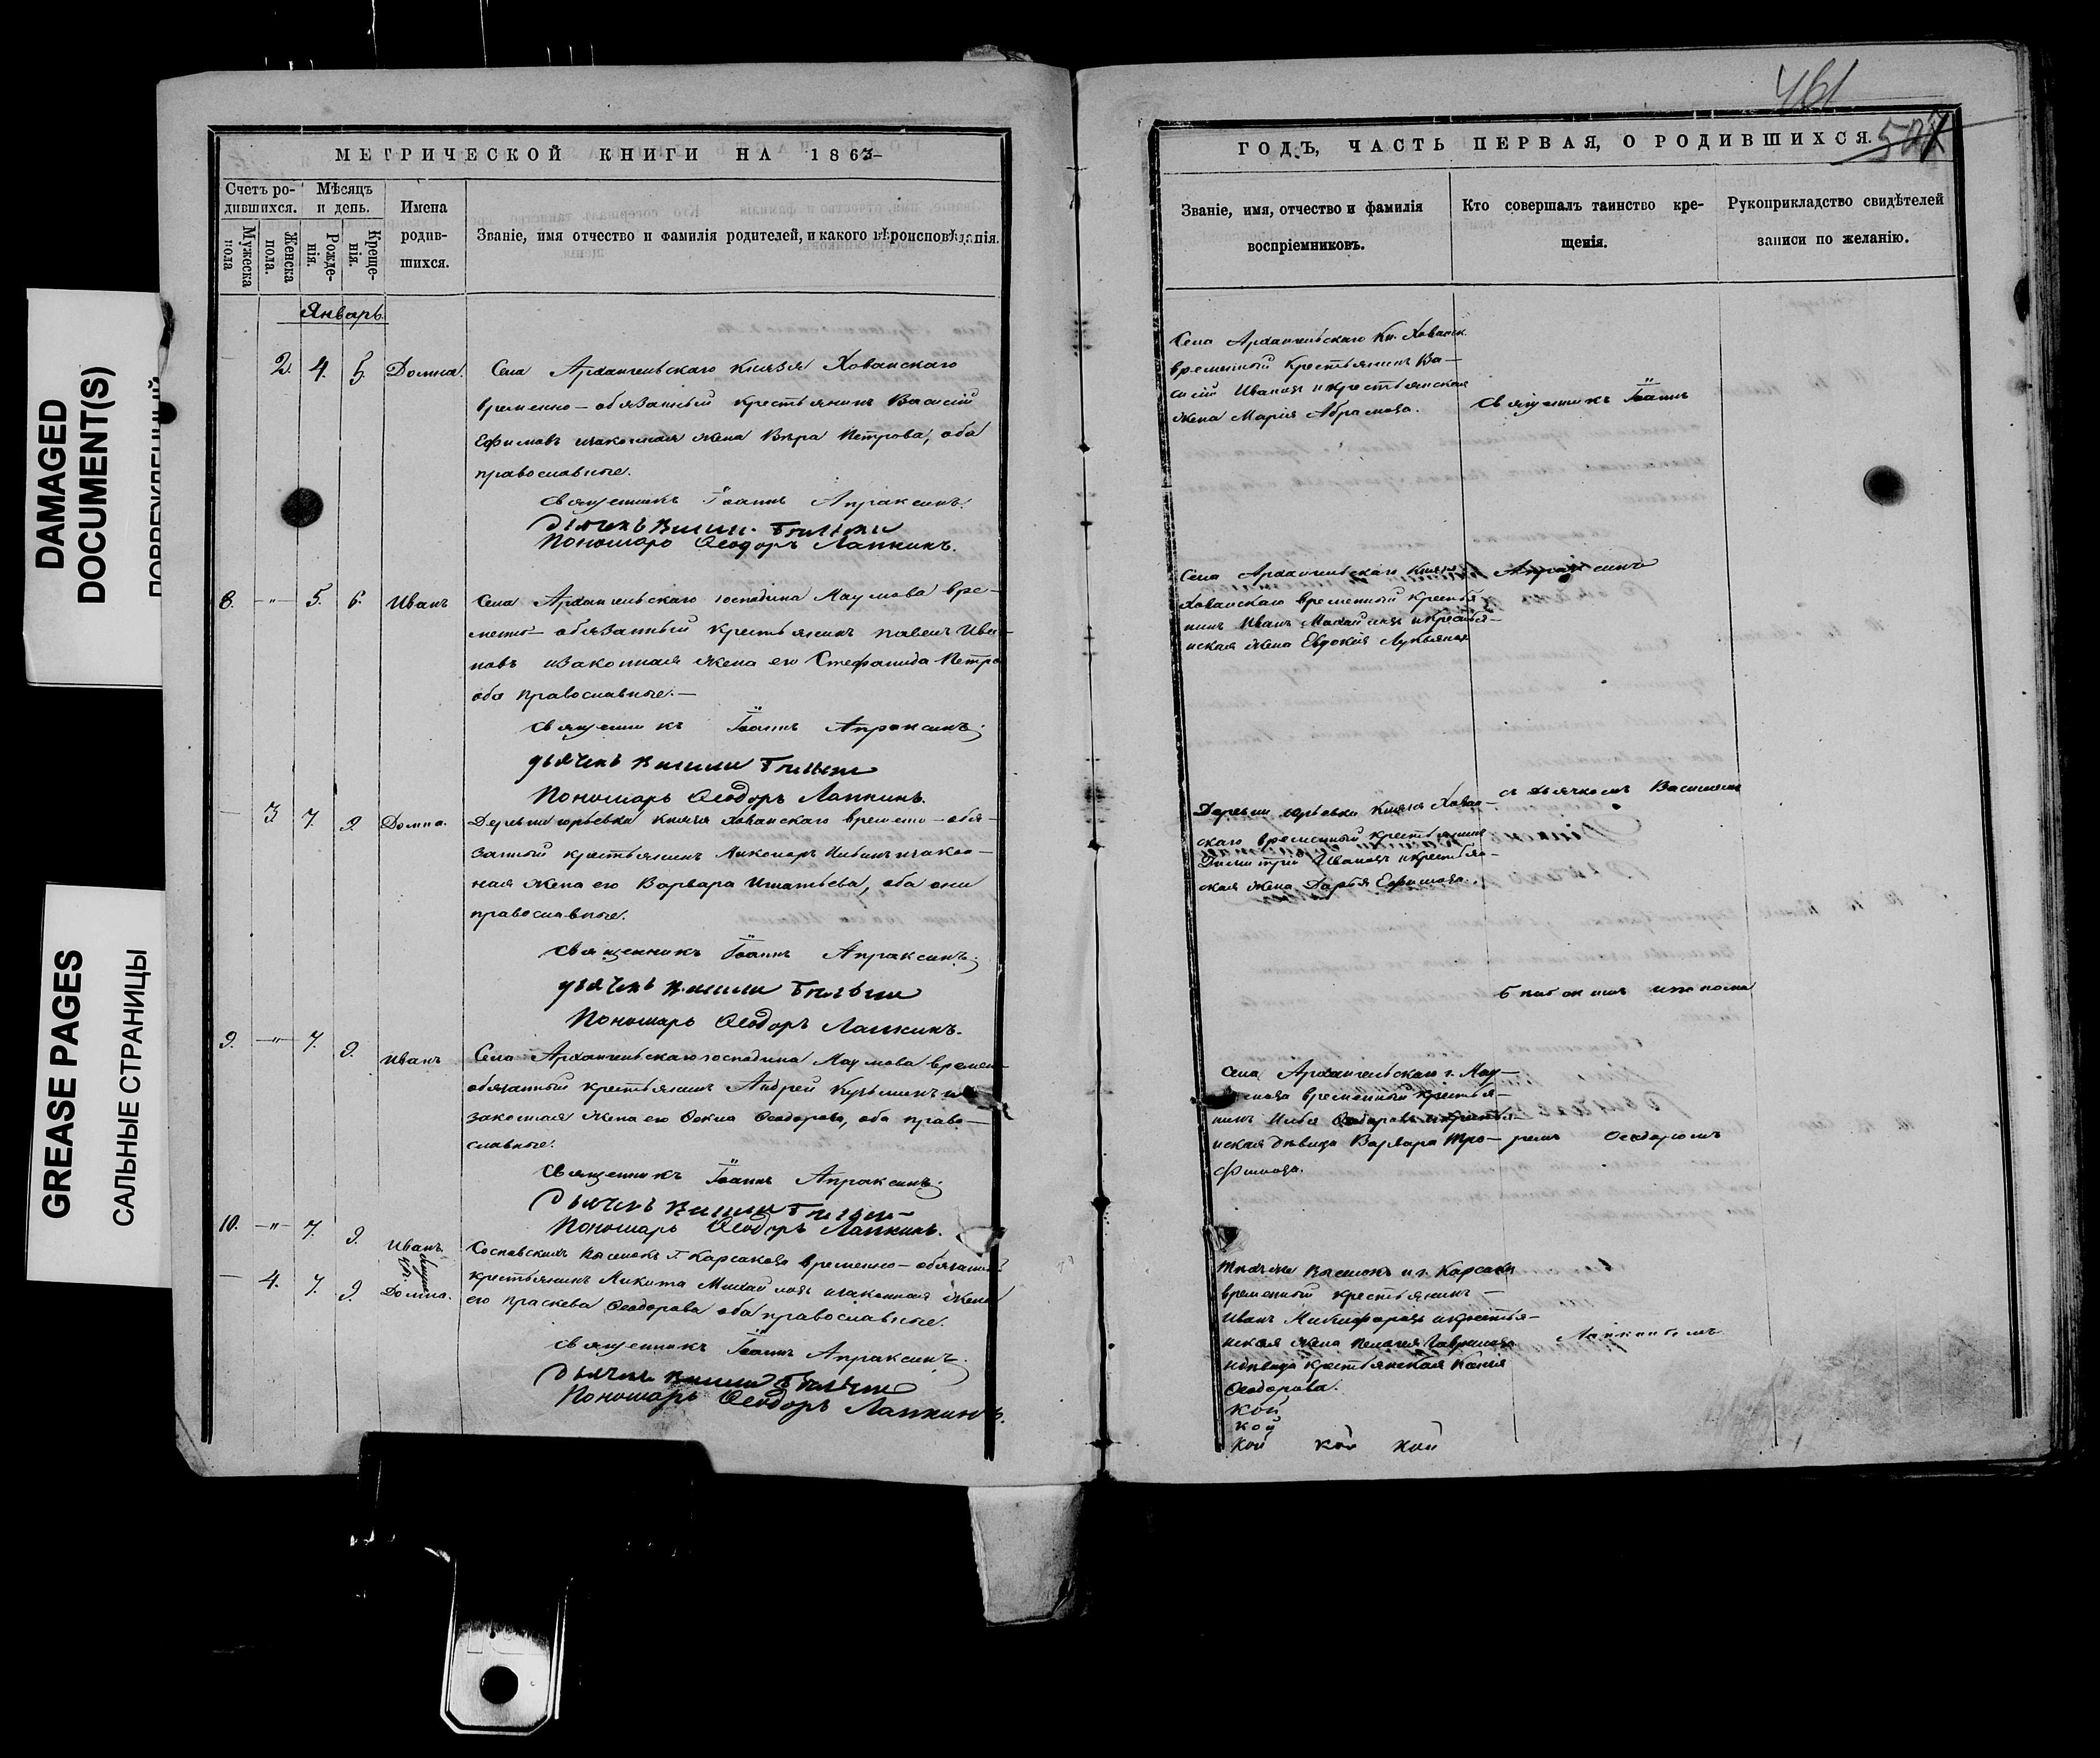 DAMAGED
DOCUMENT(S)
GREASE PAGES
САЛЬНЫЕ СТРАНИЦЫ
МЕТРИЧЕСКОЙ КНИГИ НА 1863
Счетъ ро-
дившихся.
Мужеска
пола
Женска
пола.
Мѣсяцъ
и день.
Рожде-
нія.
Креще-
нія.
Имена
родив-
шихся.
Званіе, имя отчество и фамилія родителей, и какого вѣроисповѣданія.
Январь
2. 4. 5. Домна. Села Архангельскаго Князя Хованскаго
временно-обязанный крестьянинъ Василій
Ефимовъ изаконная жена Вѣра Петрова, оба
православные.
Священникъ Іоаннъ Апраксинъ.
Пономарь Ѳеодоръ Лапкинъ.
8. -"- 5. 6. Иванъ Села Архангельскаго господина Наумова вре-
менно-обязанный крестьянинъ павелъ Ива-
новъ изаконная жена его Стефанида Петро
оба православные.-
Священникъ Іоаннъ Апраксинъ;
дьячекъ
Пономарь Ѳеодоръ Лапкинъ.
3. 7. 9. Домна. Деревни юрьевки князя Хованскаго временно-обя-
занный крестьянинъ изакон-
ная жена его Варвара Игнатьева, оба они
православные.
Священникъ Іоаннъ Апраксинъ;
дьячекъ
Пономарь Ѳеодоръ Лапкинъ.
9. -"- 7. 9. Иванъ Села Архангельскаго господина Наумова времен-
обязанный крестьянинъ Андрей Кузьминъ и
законная жена его Ѳеодорова, оба право-
славные.
Священникъ Іоаннъ Апраксинъ;
Дьячекъ
Пономарь Ѳеодоръ Лапкинъ.
10. -"- 7. 9. Иванъ
4. 7. 9. Домна.
Выселокъ г. Карсакова временно-обязанный
крестьянинъ Никита Михайловъ изаконная жена
его праскева Ѳеодорова оба православные.
Священникъ Іоаннъ Апраксинъ;
Дьячекъ
Пономарь Ѳеодоръ Лапкинъ.
461
507
ГОДЪ, ЧАСТЬ ПЕРВАЯ, О РОДИВШИХСЯ.
Званіе, имя, отчество и фамилія
воспріемниковъ.
Кто совершалъ таинство кре-
щенія.
Рукоприкладство свидѣтелей
записи по желанію.
Села Архангельскаго Кн. Хованск.
временный Крестьянинъ Ва-
силій Ивановъ икрестьянская
жена Марія Абрамова.
Священникъ Іоаннъ
Села Архангельскаго Князя
Хованскаго временный Крестья
нинъ Иванъ Михайловъ икрестья-
нская жена Евдокія Лукьянова
Апраксинъ
Деревни юрьевки Князя Хован-
скаго временный крестьянинъ
Димитрій Ивановъ икрестьян-
ская жена Дарья Ефимова.
съ дьячкомъ Василіемъ
ипоно
Села Архангельскаго г. Нау-
мова временный крестья-
нинъ Ѳеодоровъ икрестья-
нская дѣвица Варвара Тро-
фимова.
ремъ Ѳеодоромъ
Выселокъ г. Карсакова
временный крестьянинъ
Иванъ Никифоровъ икрестья-
нская жена пелагея Гаврилова
идѣвица крестьянская
Ѳеодорова.
Лапкинымъ
кой
кой
кой кой кой